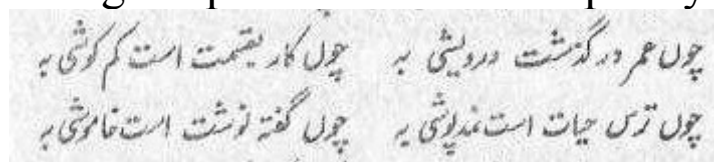 چون عمر در گذشت درویشی به چون کار بقسمت است کم کوشی به
چون ترس حیات است نمدپوشی به چون گفته نوشت است خاموشی به